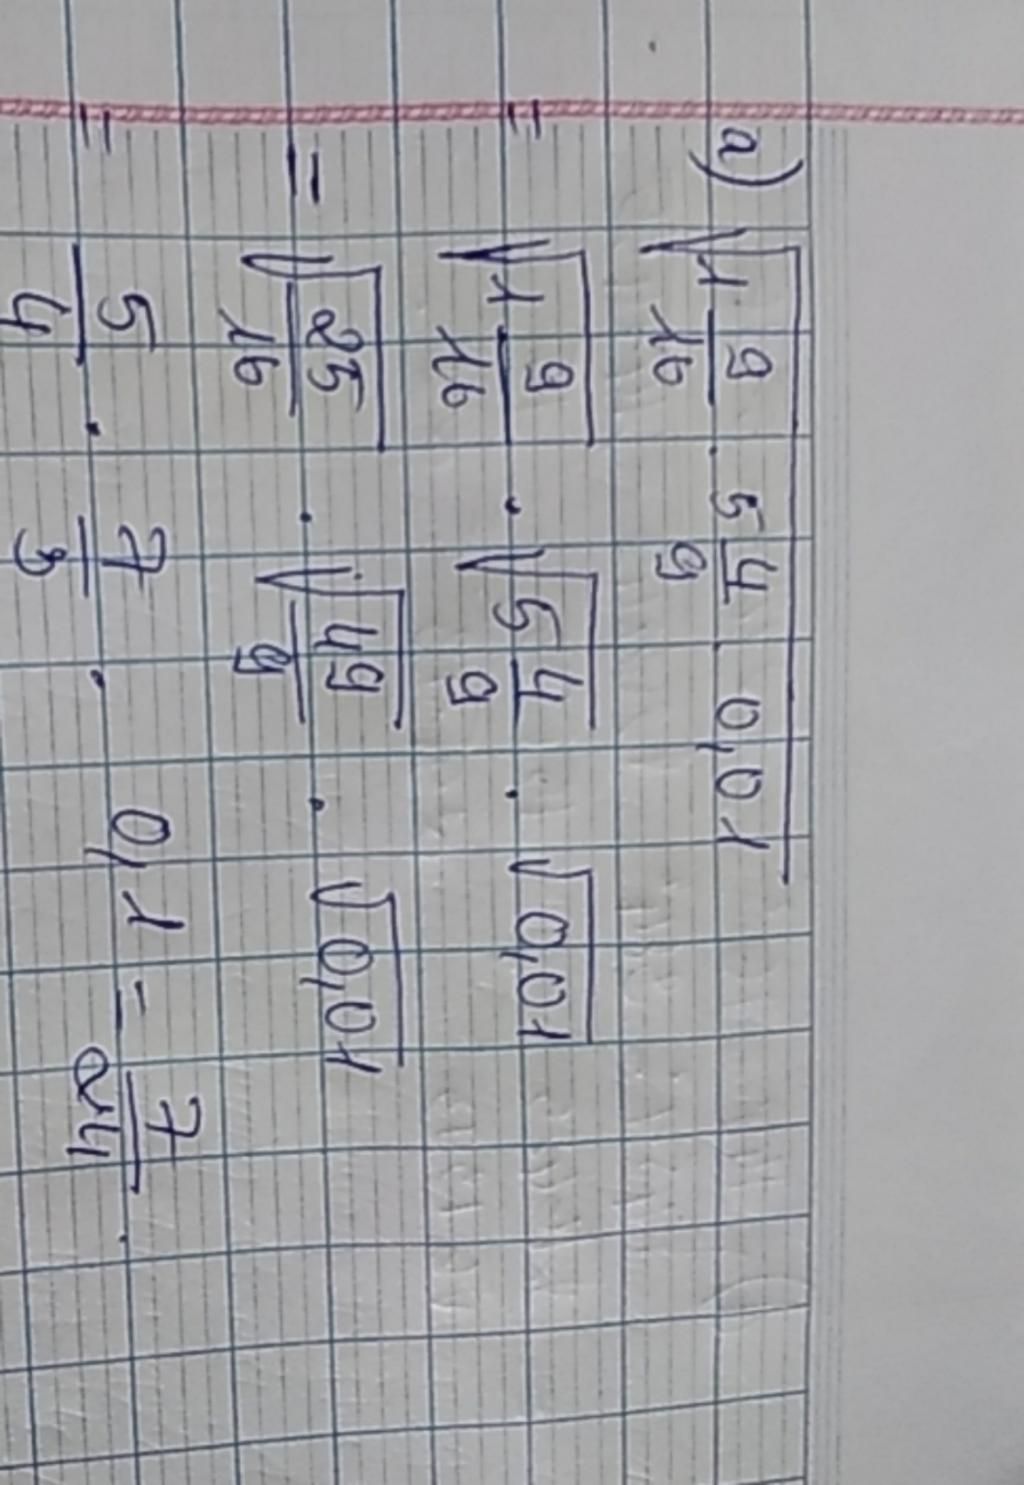 a) √(1 9/16 · 5 4/9 · 0,01)
= √(1 9/16) · √(5 4/9) · √(0,01)
= √(25/16) · √(49/9) · √(0,01)
= 5/4 · 7/3 · 0,1 = 7/24.